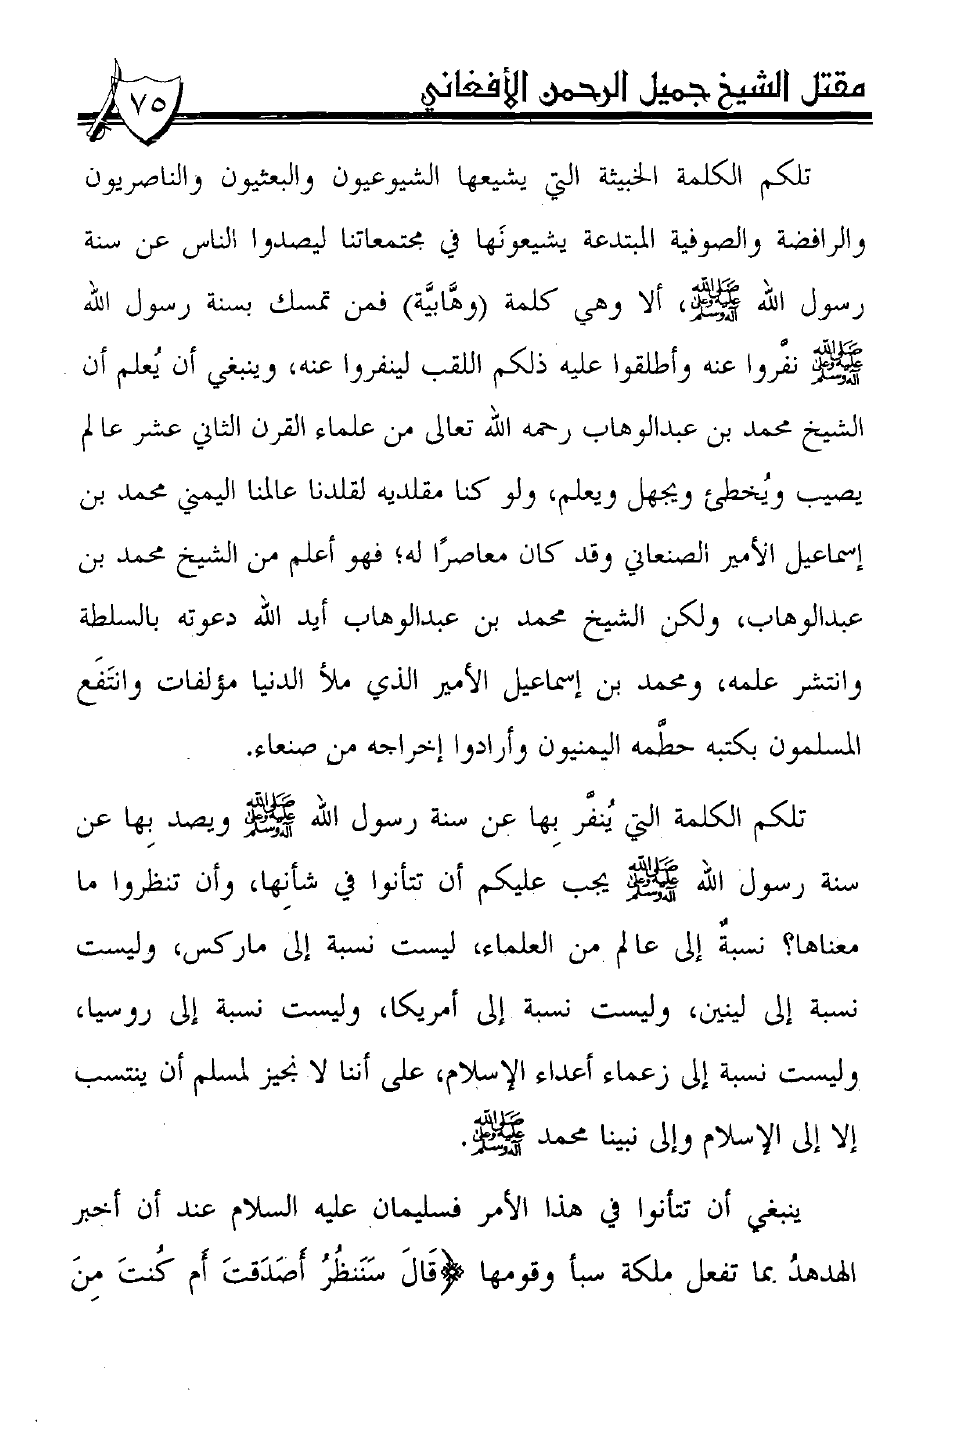 مقتل الشيخ جميل الرحمن الأفغاني
٧٥
تلكم الكلمة الخبيثة التي يشيعها الشيوعيون والبعثيون والناصريون
والرافضة والصوفية المبتدعة يشيعونَها في مجتمعاتنا ليصدوا الناس عن سنة
رسول الله ﷺ، ألا وهي كلمة (وهَّابيَّة) فمن تمسك بسنة رسول الله
ﷺ نفَّروا عنه وأطلقوا عليه ذلكم اللقب لينفروا عنه، وينبغي أن يُعلم أن
الشيخ محمد بن عبدالوهاب رحمه الله تعالى من علماء القرن الثاني عشر عالم
يصيب ويُخطئ ويجهل ويعلم، ولو كنا مقلديه لقلدنا عالمنا اليمني محمد بن
إسماعيل الأمير الصنعاني وقد كان معاصرًا له؛ فهو أعلم من الشيخ محمد بن
عبدالوهاب، ولكن الشيخ محمد بن عبدالوهاب أيد الله دعوته بالسلطة
وانتشر علمه، ومحمد بن إسماعيل الأمير الذي ملأ الدنيا مؤلفات وانتَفَع
المسلمون بكتبه حطَّمه اليمنيون وأرادوا إخراجه من صنعاء.
تلكم الكلمة التي يُنفَّر بِها عن سنة رسول الله ﷺ ويصد بِها عن
سنة رسول الله ﷺ يجب عليكم أن تتأنوا في شأنِها، وأن تنظروا ما
معناها؟ نسبةٌ إلى عالم من العلماء، ليست نسبة إلى ماركس، وليست
نسبة إلى لينين، وليست نسبة إلى أمريكا، وليست نسبة إلى روسيا،
وليست نسبة إلى زعماء أعداء الإسلام، على أننا لا نجيز لمسلم أن ينتسب
إلا إلى الإسلام وإلى نبينا محمد ﷺ.
ينبغي أن تتأنوا في هذا الأمر فسليمان عليه السلام عند أن أخبر
الهدهدُ بما تفعل ملكة سبأ وقومها ﴿قَالَ سَنَنظُرُ أَصَدَقتَ أَم كُنتَ مِنَ